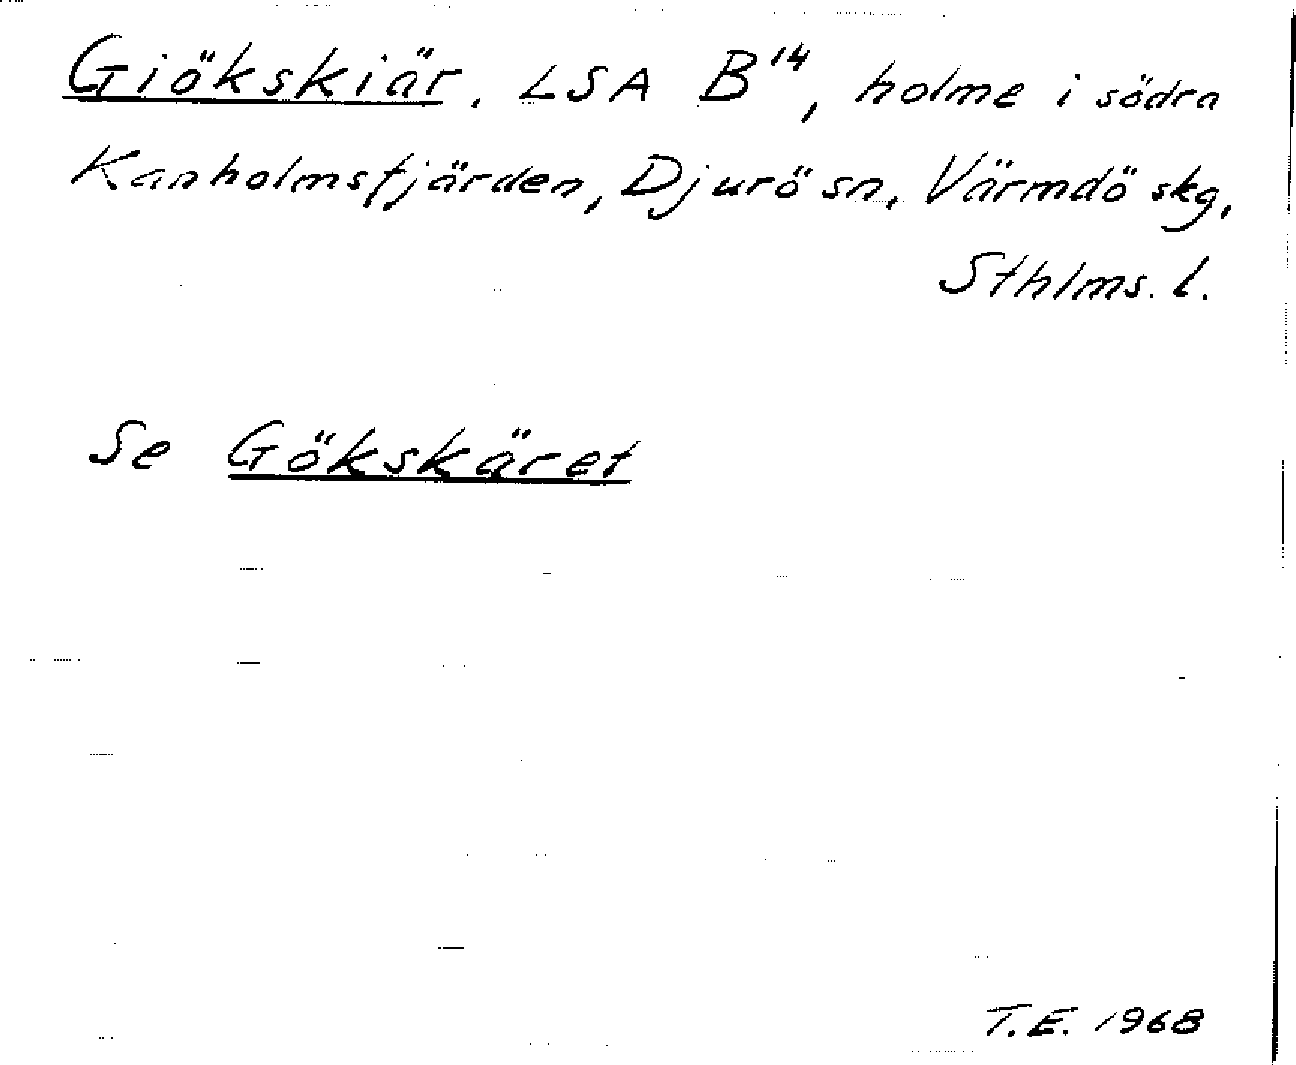 Giökskiär. LSA B¹⁴, holme i södra
Kanholmsfjärden, Djurö sn, Värmdö skg,
Sthlms. l.
Se Gökskäret
T.E. 1968